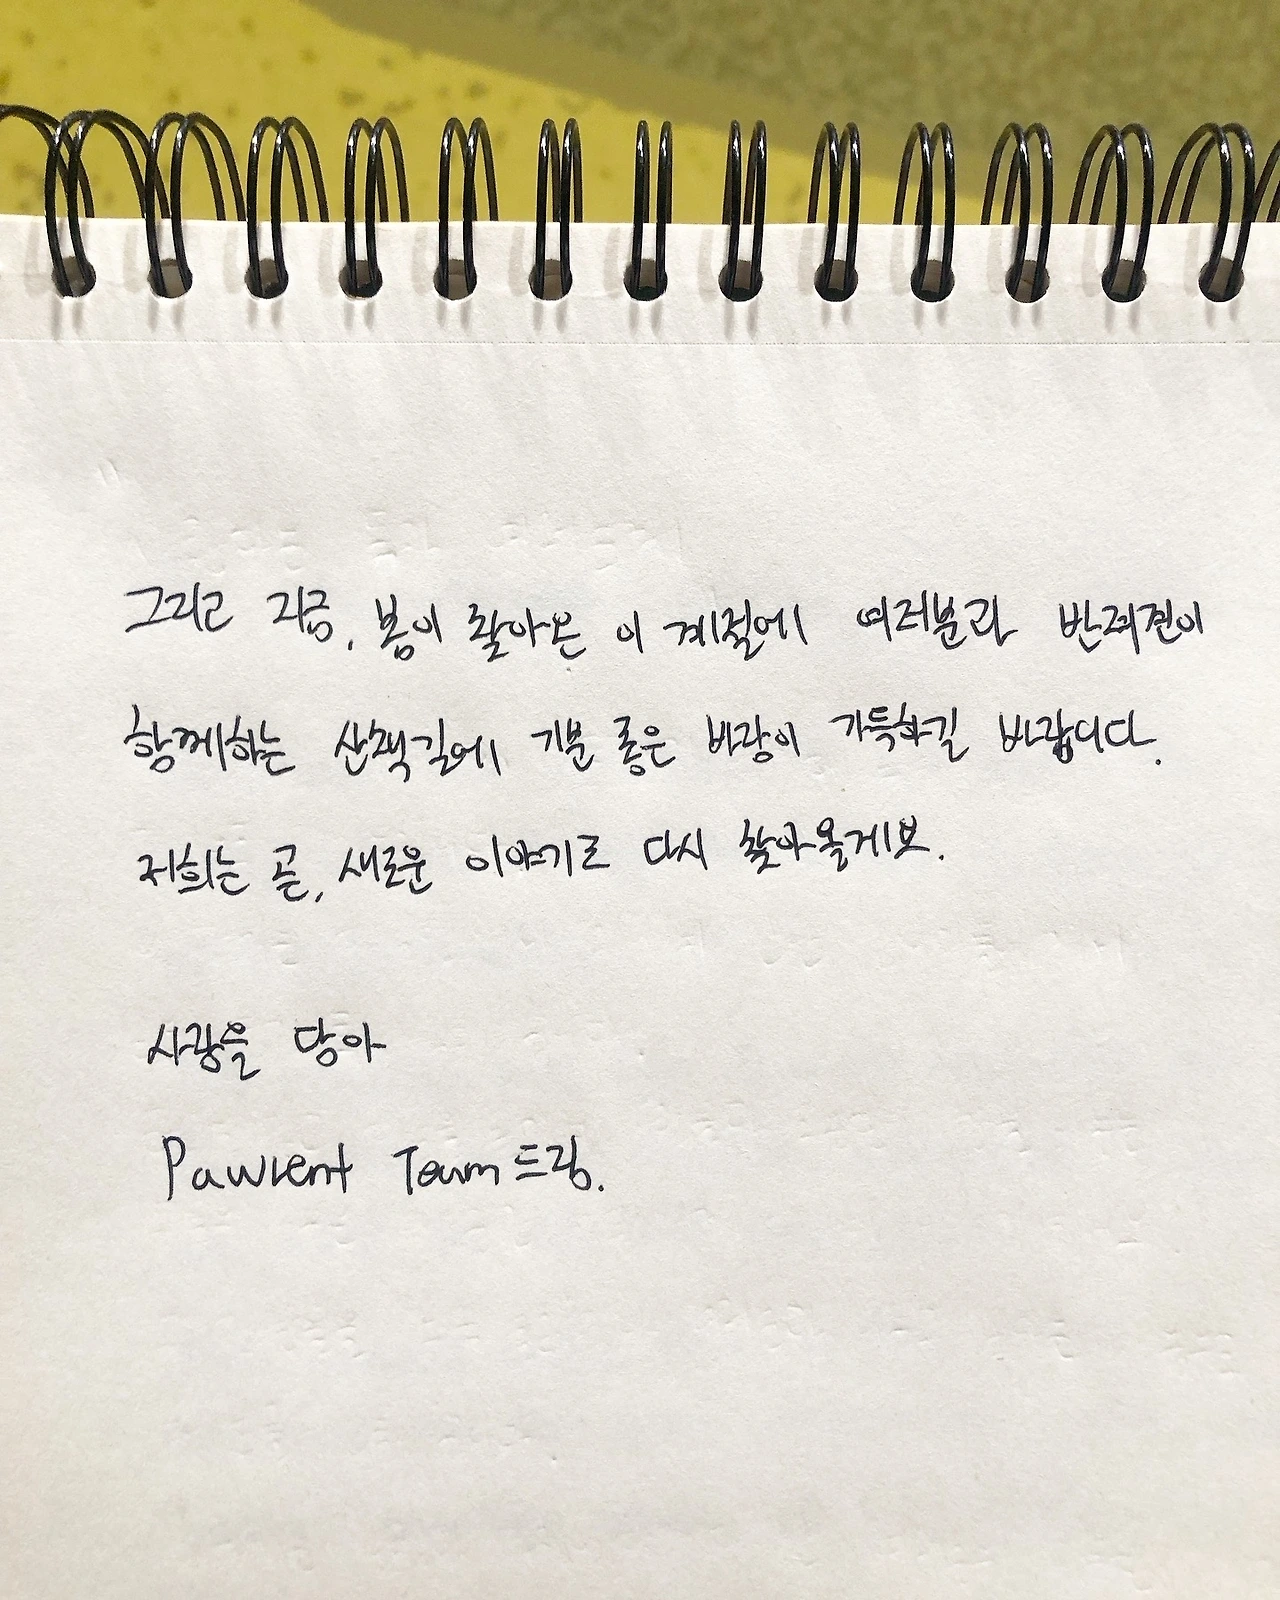 그리고 지금, 봄이 찾아온 이 계절에 여러분과 반려견이
함께하는 산책길에 기분 좋은 바람이 가득하길 바랍니다.
저희는 곧, 새로운 이야기로 다시 찾아올게요.
사랑을 담아
Pawrent Team 드림.